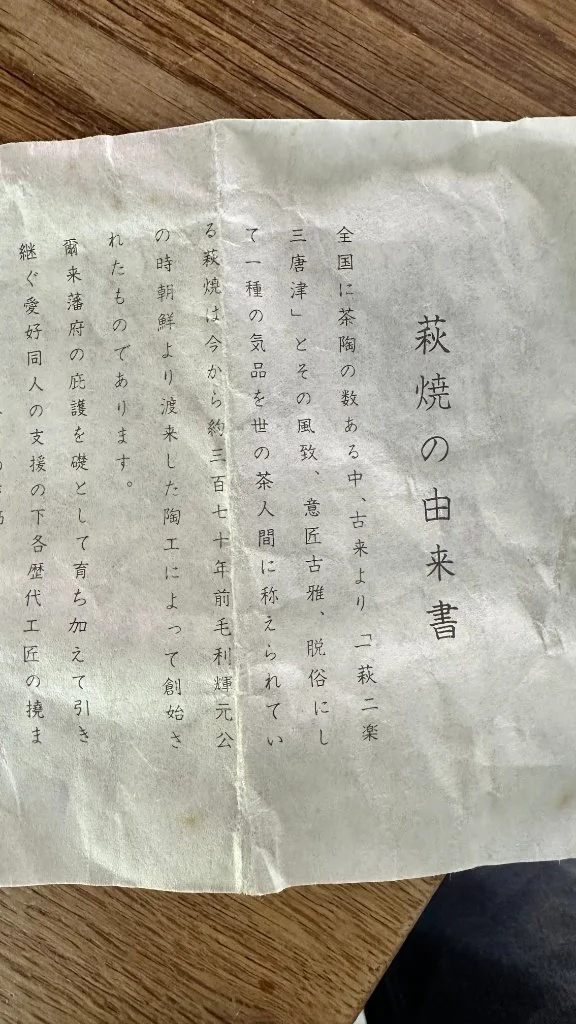 萩焼の由来書
全国に茶陶の数ある中、古来より「一萩二楽
三唐津」とその風致、意匠古雅、脱俗にし
て一種の気品を世の茶人間に称えられてい
る萩焼は今から約三百七十年前毛利輝元公
の時朝鮮より渡来した陶工によって創始さ
れたものであります。
爾来藩府の庇護を礎として育ち加えて引き
継ぐ愛好同人の支援の下各歴代工匠の撓ま